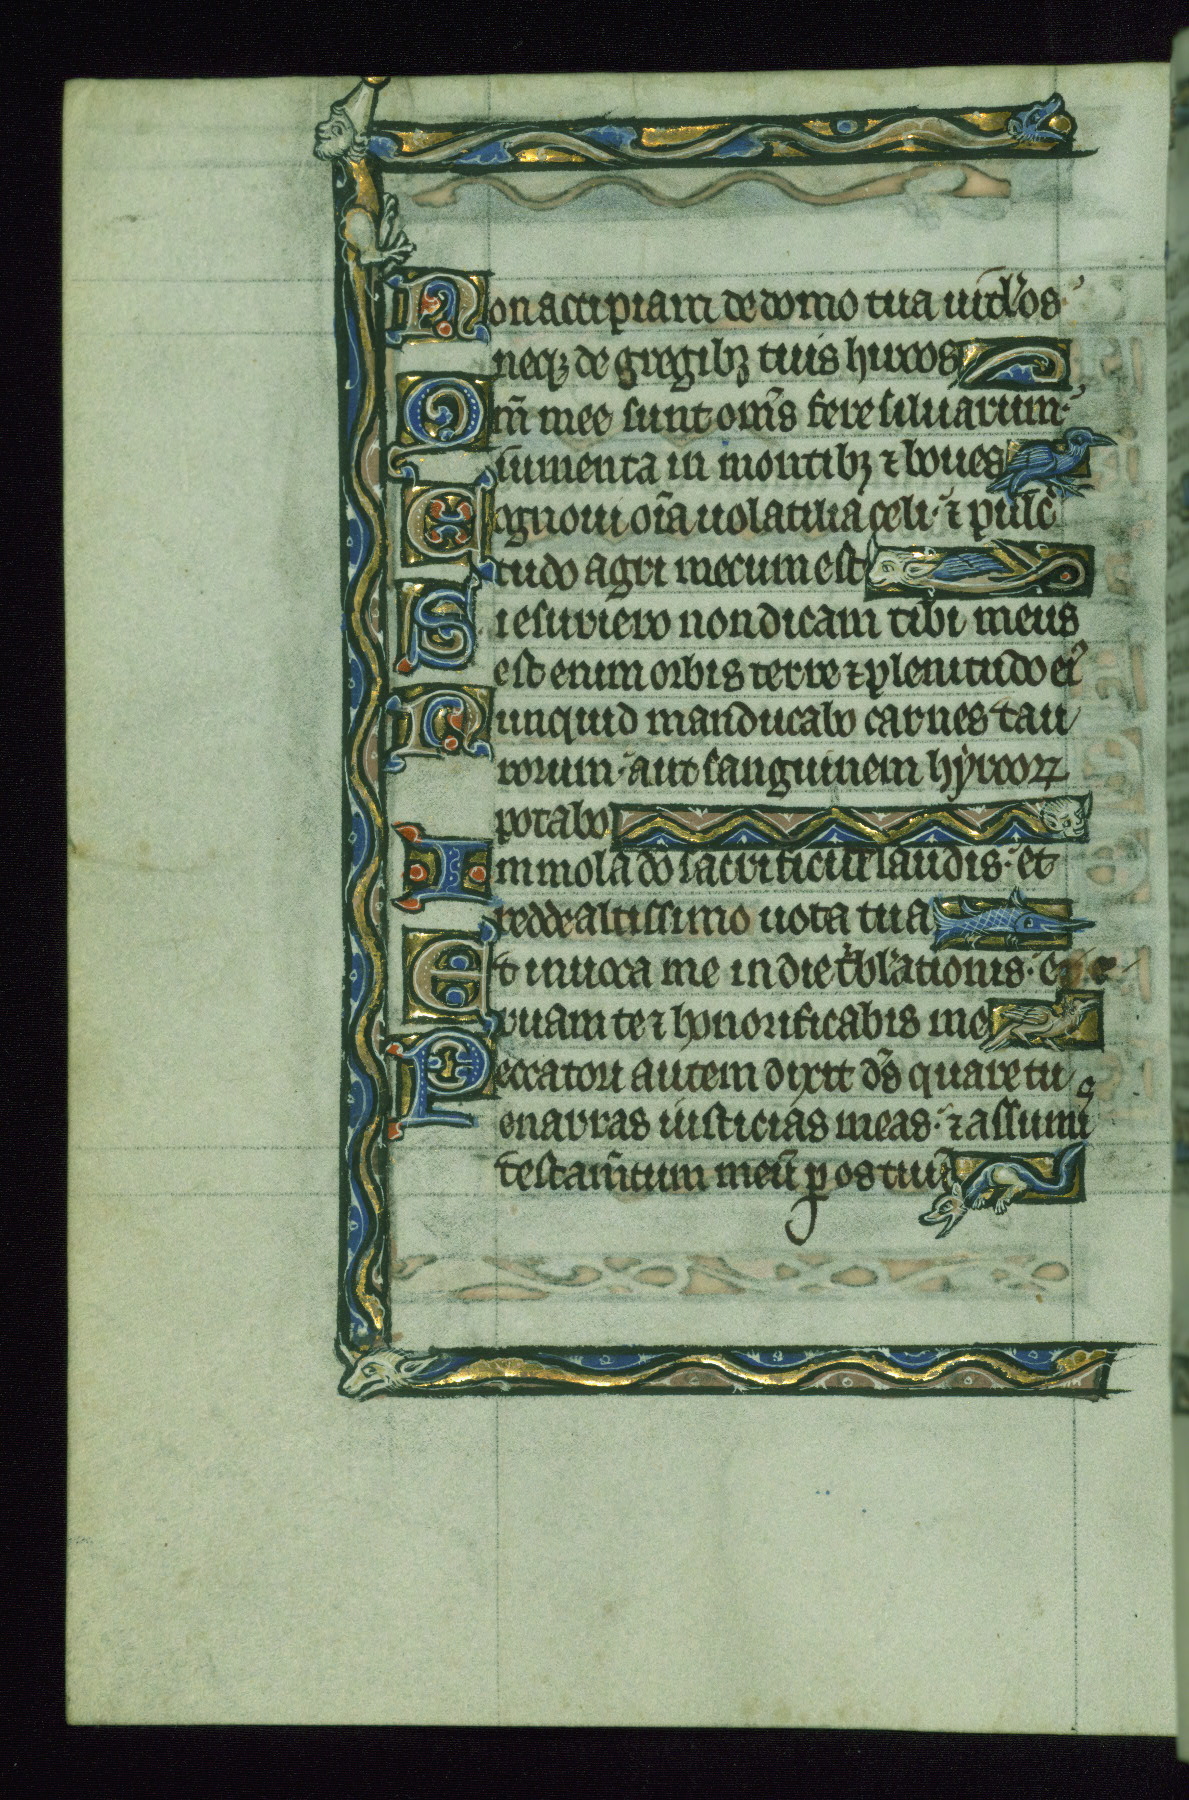 Non accipiam de domo tua uitłos
neqꝫ de gregibꝫ tuis hircos
Qm̄ mee sunt om̄s fere siluarum·
iumenta in montibꝫ ⁊ boues
Cognoui oīa uolatilia celi· ⁊ pulc̄
tudo agri mecum est
Si esuriero non dicam tibi meus
est enim orbis terre ⁊ plenitudo eiꝰ
Nunquid manducabo carnes tau
rorum· aut sanguinem hẏrcorꝝ
potabo
Immola do sacrificium laudis· et
redde altissimo uota tua
Et inuoca me in die t̄bl̄ationis· e
ruam te ⁊ honorificabis me
Peccatori autem dixit ds̄ quare tu
enarras iusticias meas· ⁊ assumis
testam̄tum meū ꝑ os tuū